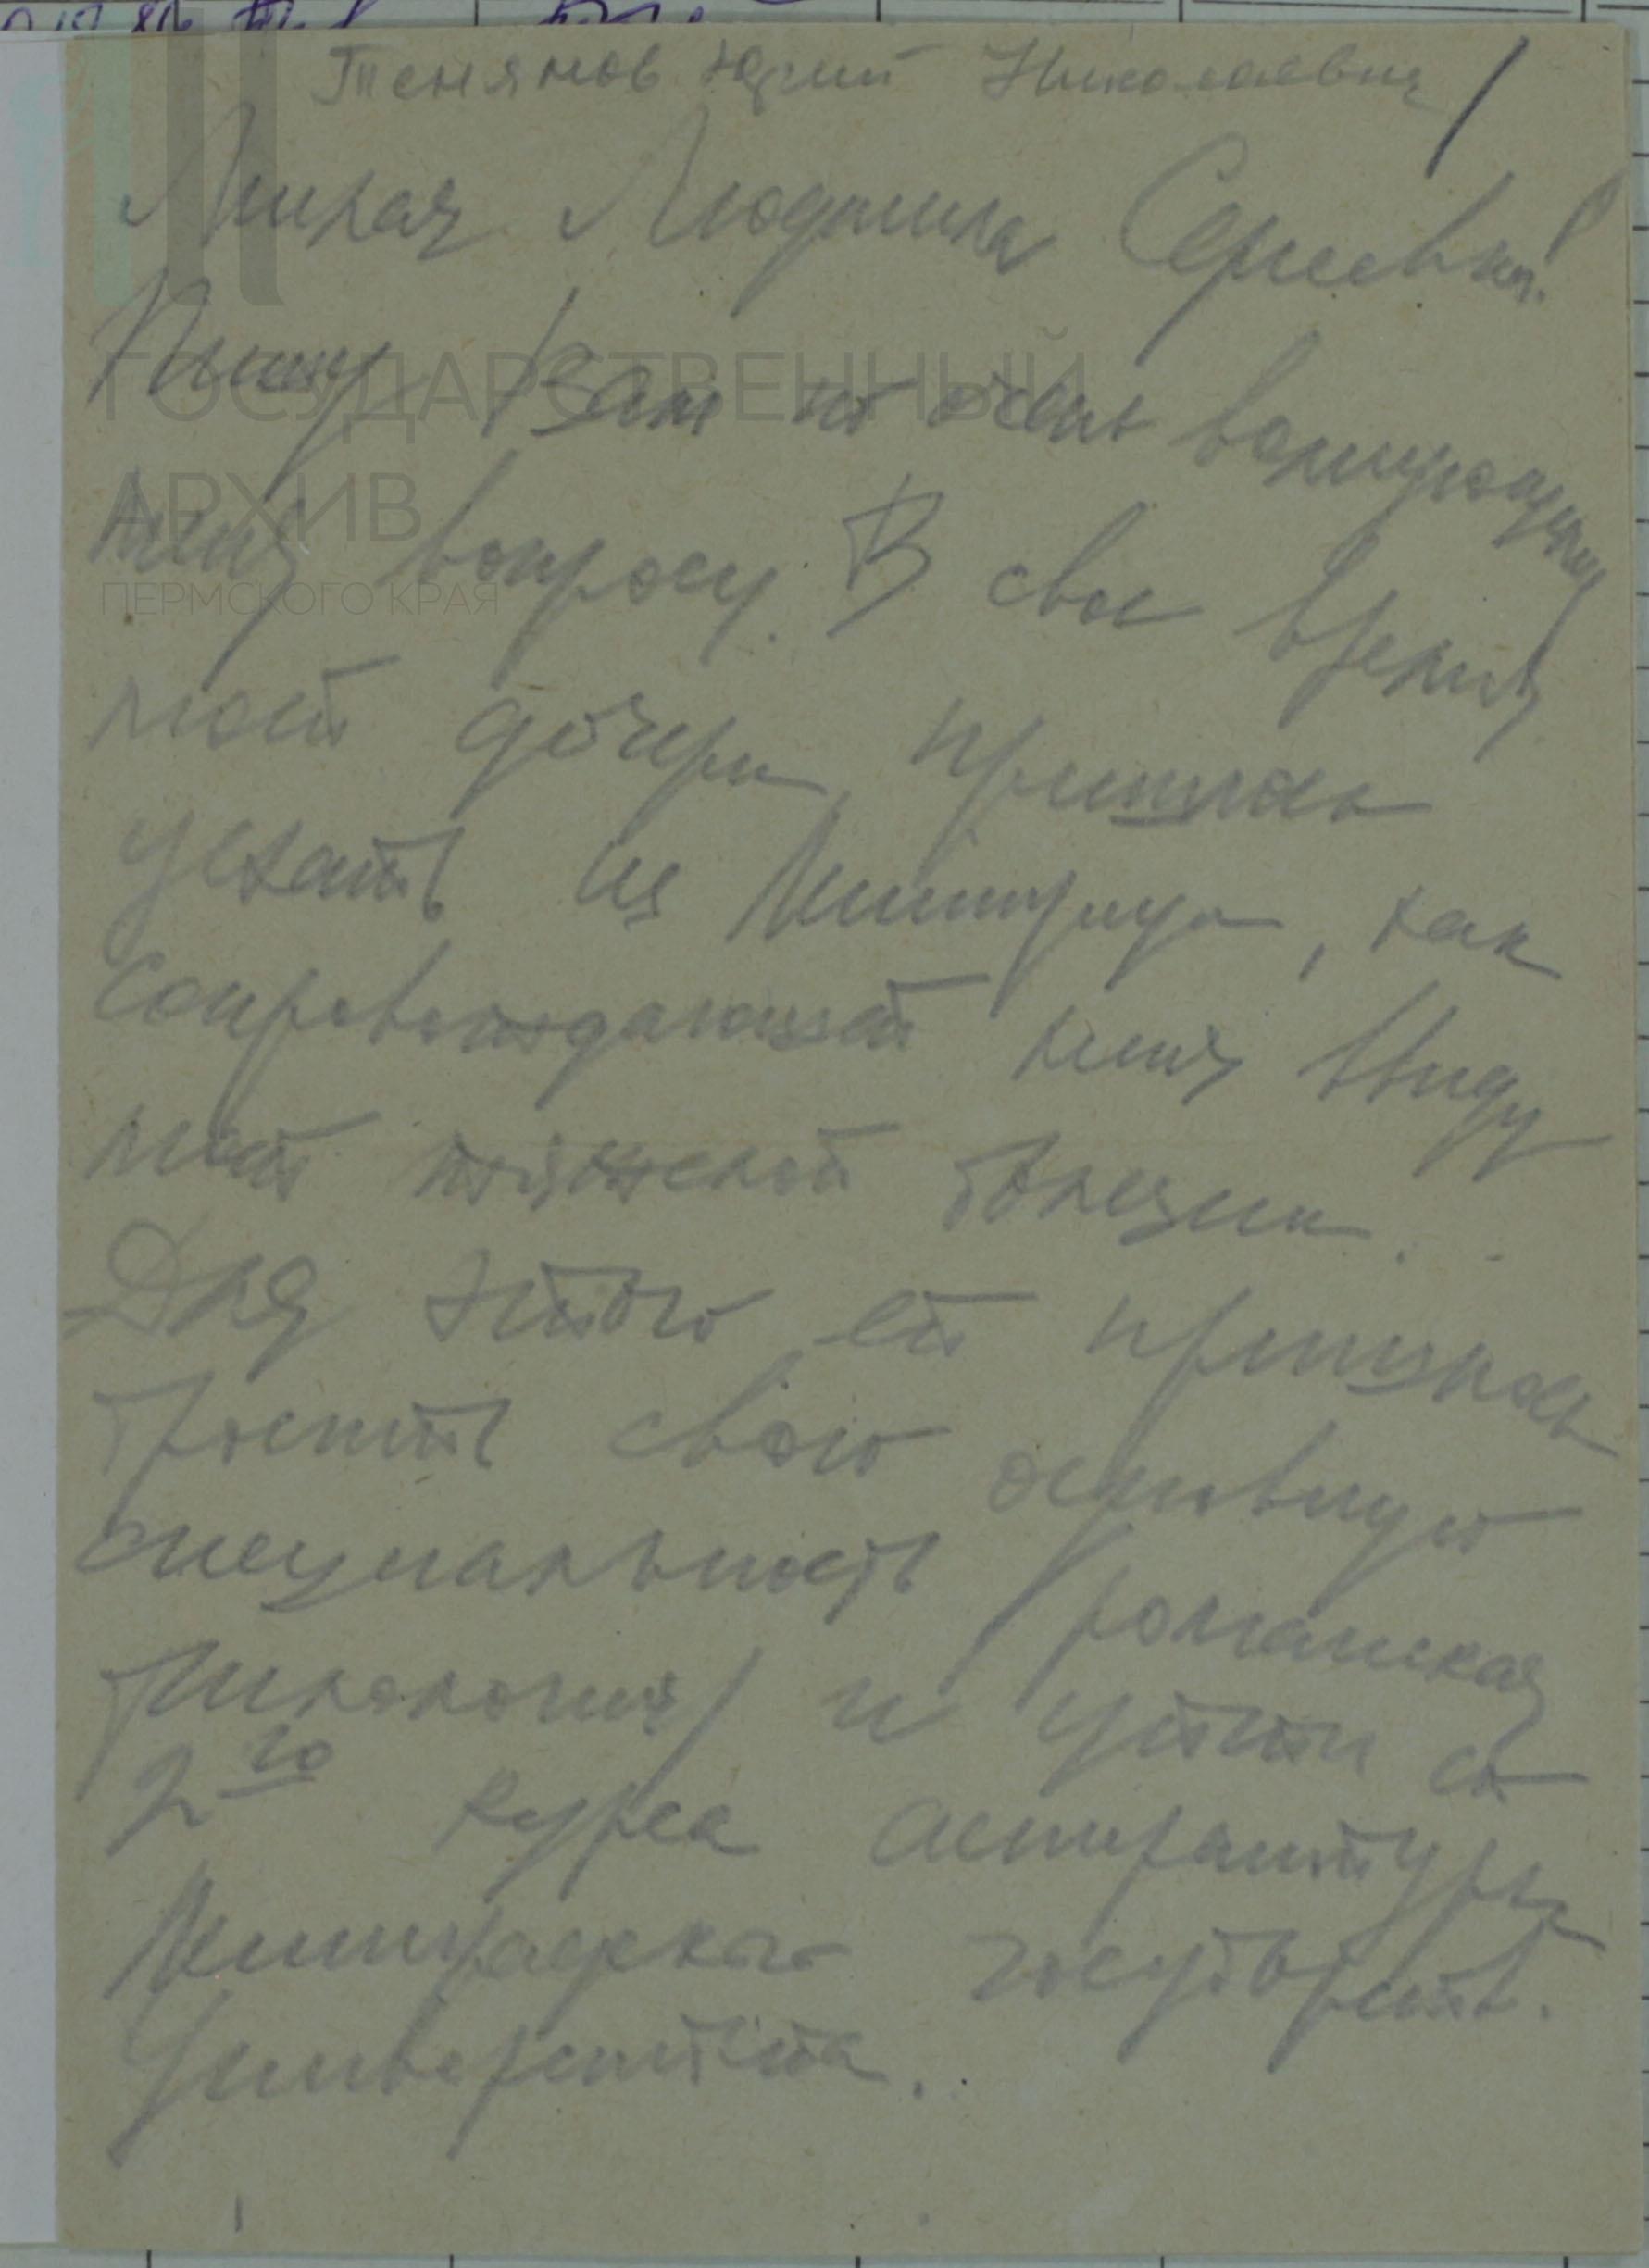 Тенянов Юрий Николаевич
Милая Людмила Сергеевна!
Пишу Вам по очень волнующему
меня вопросу. В свое время
моей дочери пришлось
уехать из Ленинграда, как
сопровождающей меня ввиду
моей тяжелой болезни.
Для этого ей пришлось
бросить свою основную
специальность (романская
филология) и уйти со
2го курса аспирантуры
Ленинградского государств.
Университета.
ГОСУДАРСТВЕННЫЙ
АРХИВ
ПЕРМСКОГО КРАЯ